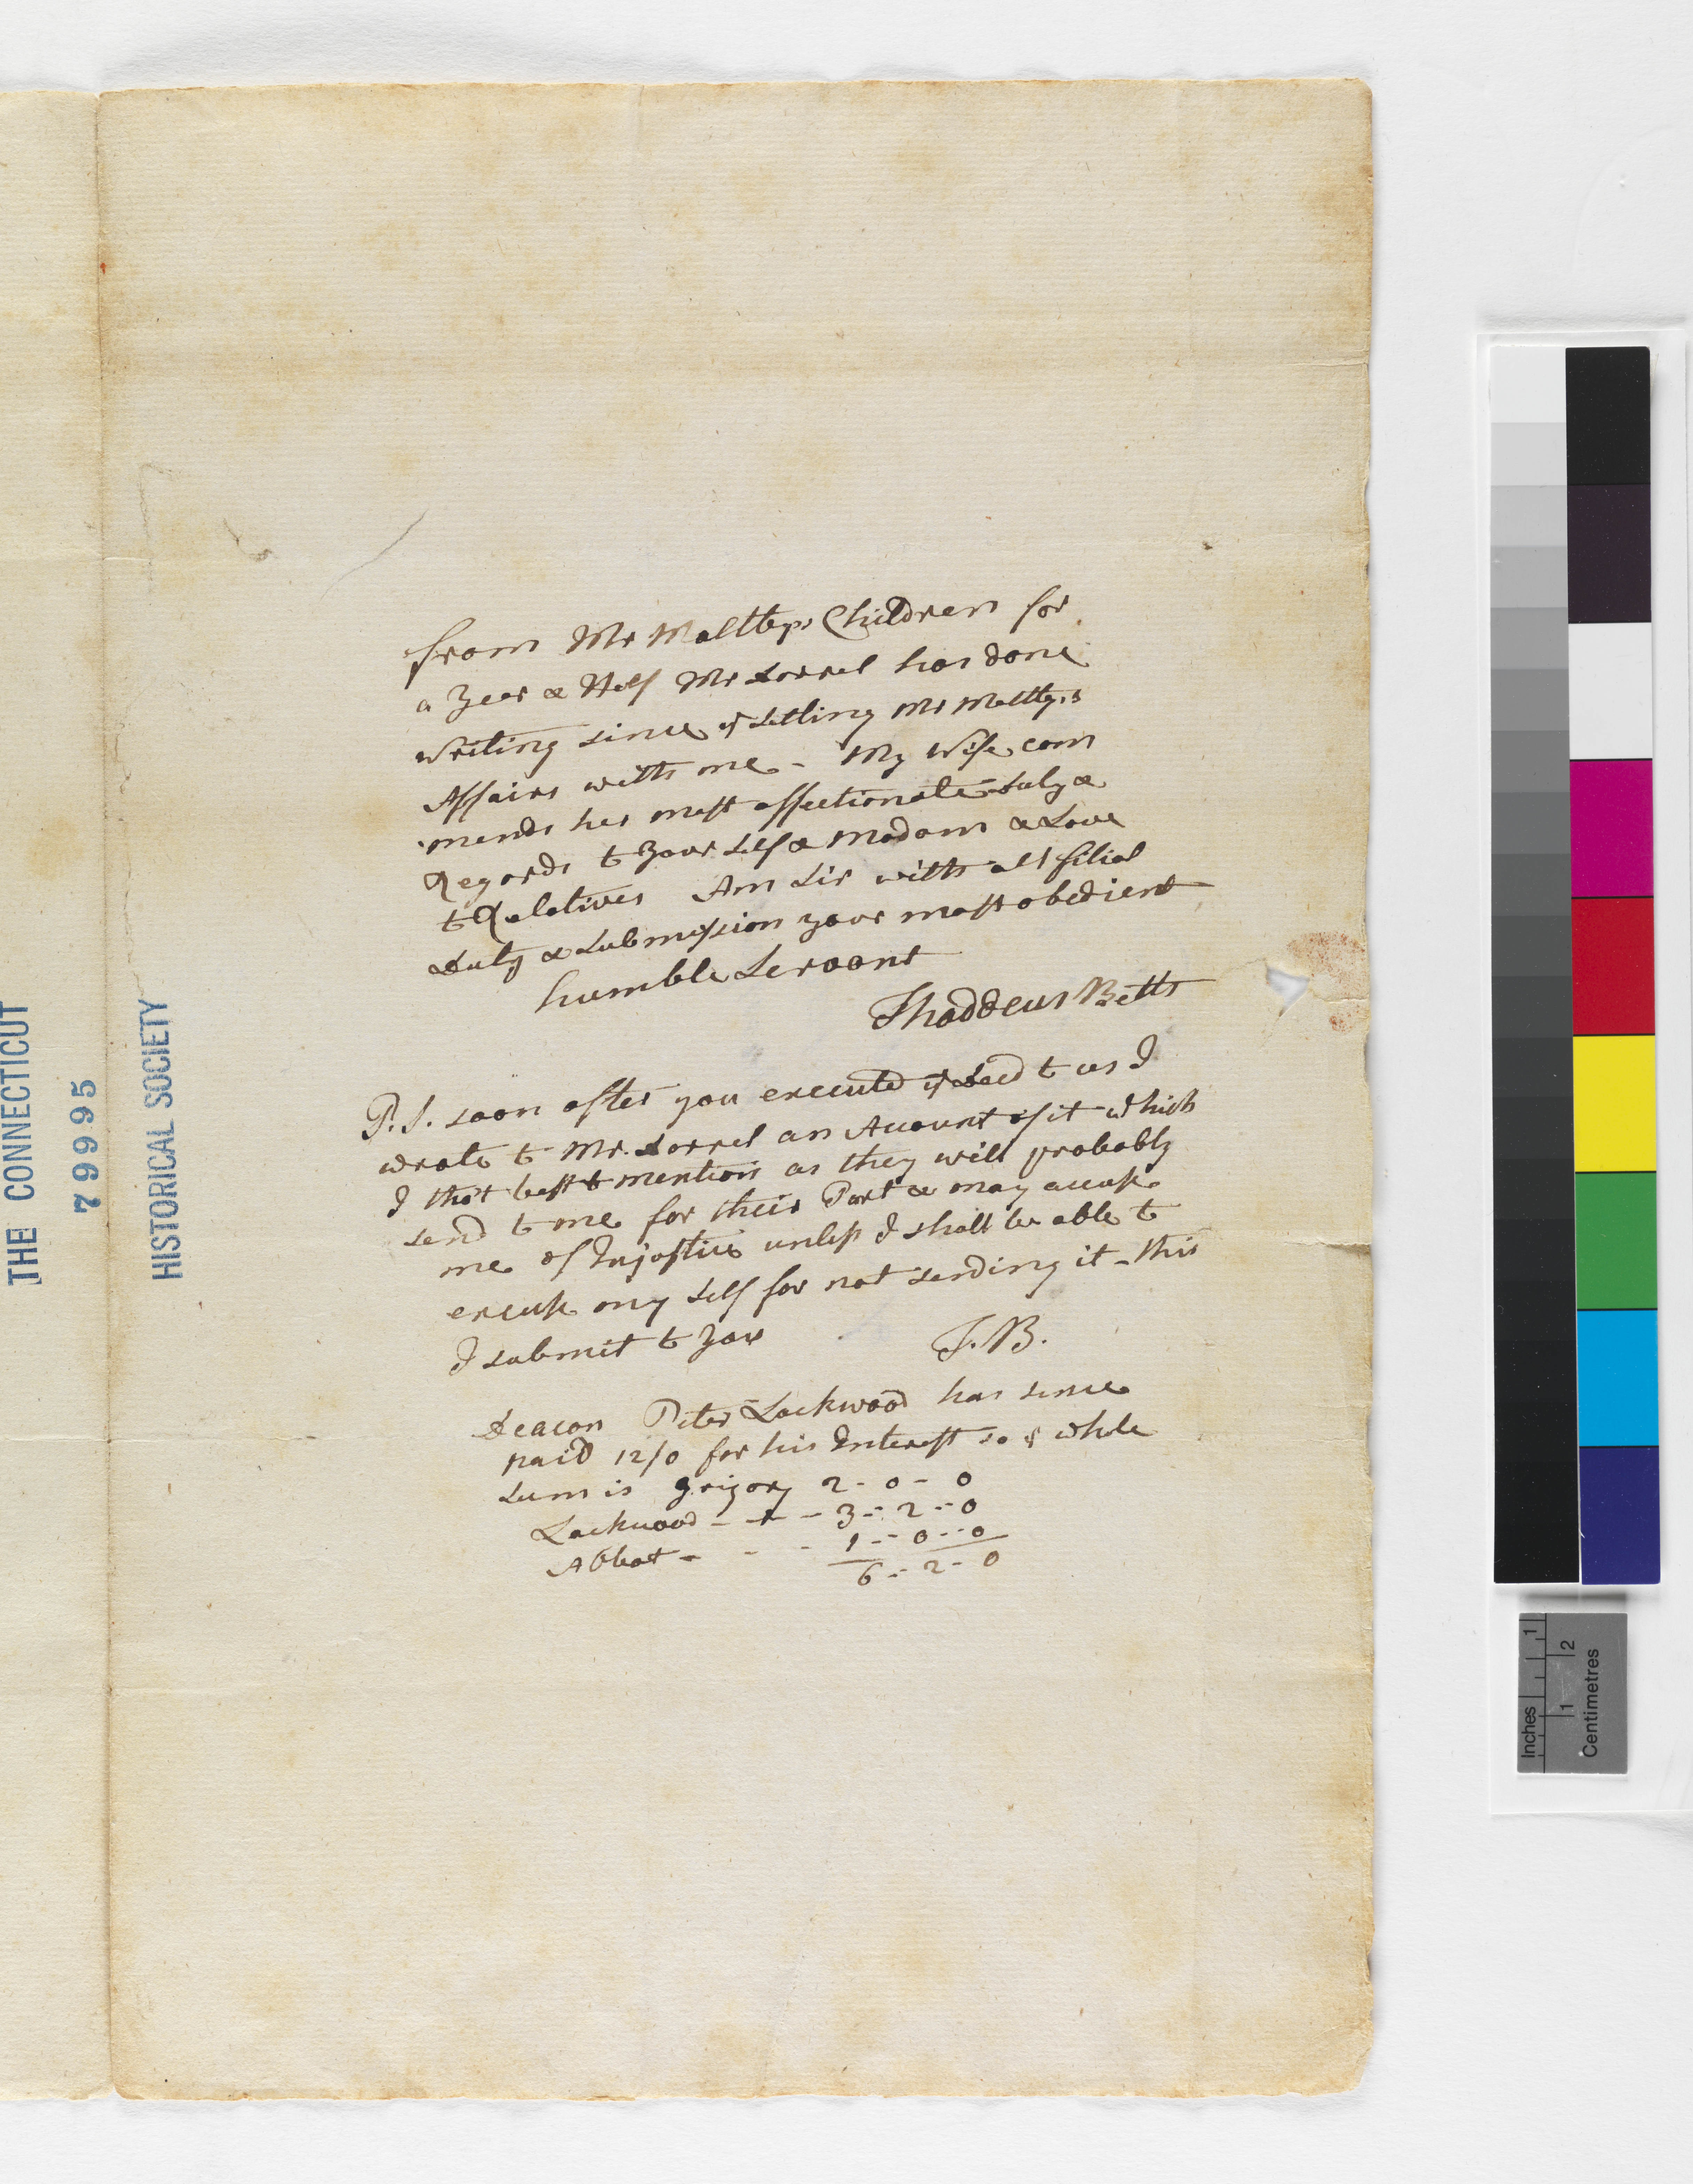 from Mr Maltbys Children for
a Year & Half Mr Lorrel has done
Writing since ye Setling Mr Maltbys
Affairs with me - My Wife com
mends her most affectionate Duty &
Regards to your Self & Madam & Love
to Relatives Am Sir with all filial
Duty & Submission your most obedient
humble Servant
Thaddeus Betts
P.S. soon after you executed ye Deed to us I
wrote to Mr. Lorrel an Account of it which
I tho't best to mention as they will probably
send to me for their Part & may accuse
me of Injustice unless I shall be able to
excuse my Self for not sending it - this
I submit to you
T.B.
Deacon Peter Lockwood has since
paid 12/0 for his Interest so ye whole
Sum is Grigory 2 - 0 - 0
Lockwood - - - 3 - 2 - 0
Abbot - - - 1 - 0 - 0
6 - 2 - 0
THE CONNECTICUT
79995
HISTORICAL SOCIETY
Inches 1
1 2
Centimetres